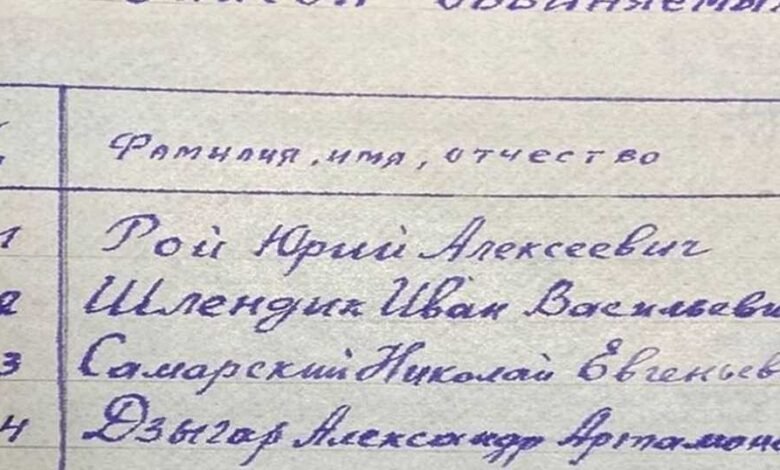 Список обвиняемых
Фамилия, имя, отчество
1 Рой Юрий Алексеевич
2 Шлендик Иван Васильеви
3 Самарский Николай Евгеньев
4 Дзыгар Александр Артамон